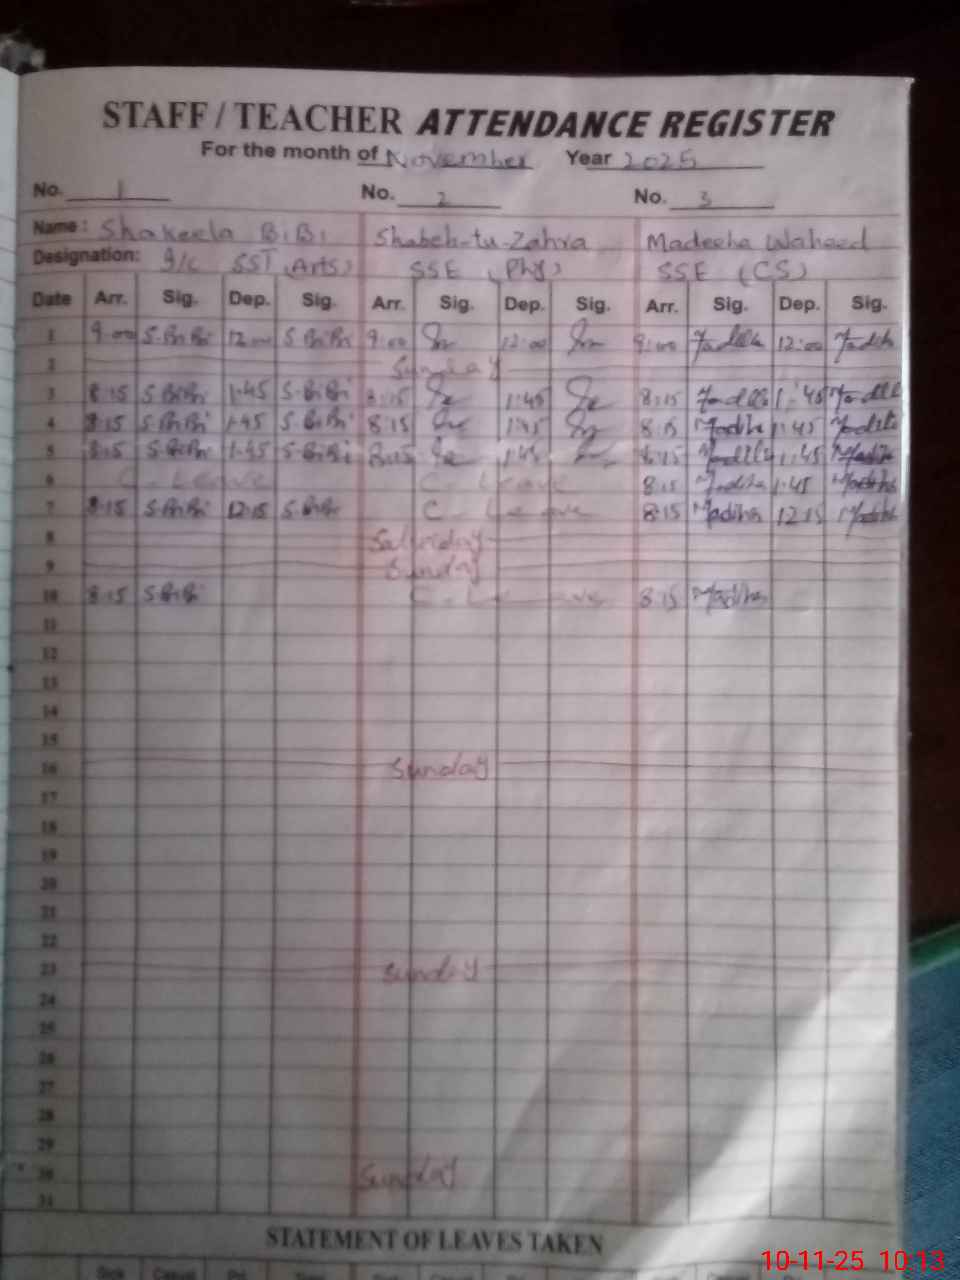 STAFF / TEACHER ATTENDANCE REGISTER
For the month of November Year 2025
No. 1 No. 2 No. 3
Name: Shakeela BiBi Shabeh-tu-Zahra Madeeha Waheed
Designation: I/C SST (Arts) SSE (Phy) SSE (CS)
Date Arr. Sig. Dep. Sig. Arr. Sig. Dep. Sig. Arr. Sig. Dep. Sig.
1 9:00 S.BiBi 12:00 S.BiBi 9:00 12:00 9:00 12:00
2 Sunday
3 8:15 S.BiBi 1:45 S.BiBi 8:15 1:45 8:15 1:45
4 8:15 S.BiBi 1:45 S.BiBi 8:15 1:45 8:15 Madiha 1:45
5 8:15 S.BiBi 1:45 S.BiBi 8:15 1:45 8:15 1:45 Madiha
6 C. Leave C. Leave 8:15 Madiha 1:45 Madiha
7 8:15 S.BiBi 12:15 S.BiBi C. Leave 8:15 Madiha 12:15 Madiha
8 Saturday
9 Sunday
10 8:15 S.BiBi C. Leave 8:15 Madiha
11
12
13
14
15
16 Sunday
17
18
19
20
21
22
23 Sunday
24
25
26
27
28
29
30 Sunday
31
STATEMENT OF LEAVES TAKEN
10-11-25 10:13